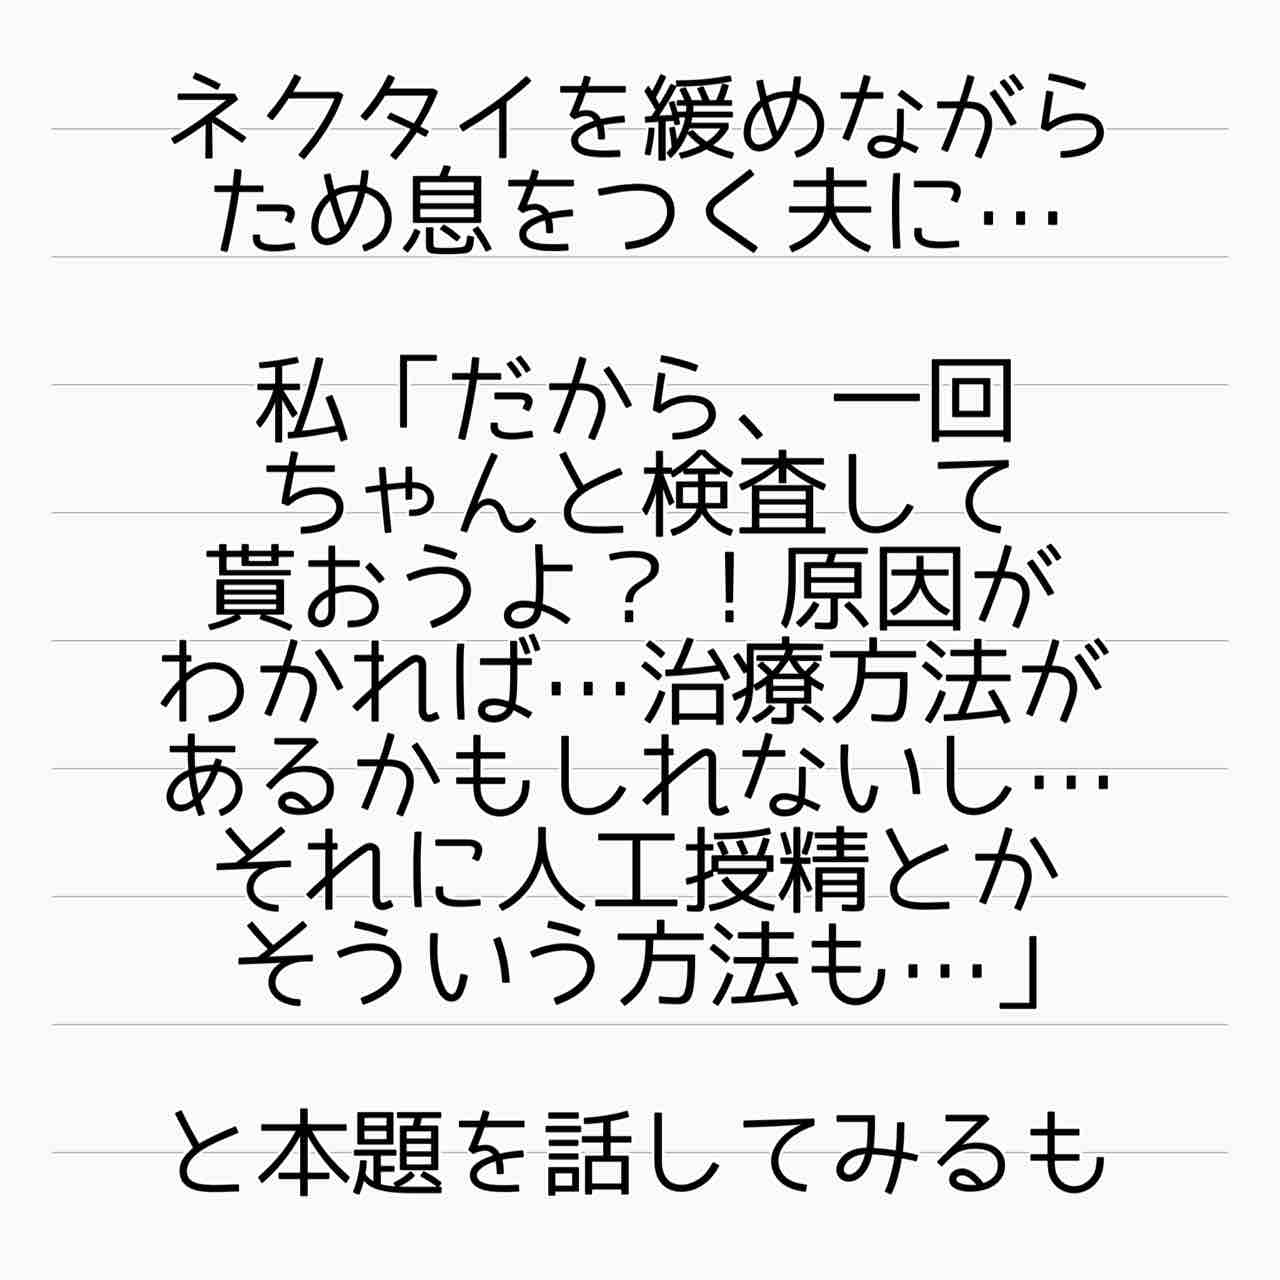 ネクタイを緩めながら
ため息をつく夫に…
私「だから、一回
ちゃんと検査して
貰おうよ？！原因が
わかれば…治療方法が
あるかもしれないし…
それに人工授精とか
そういう方法も…」
と本題を話してみるも